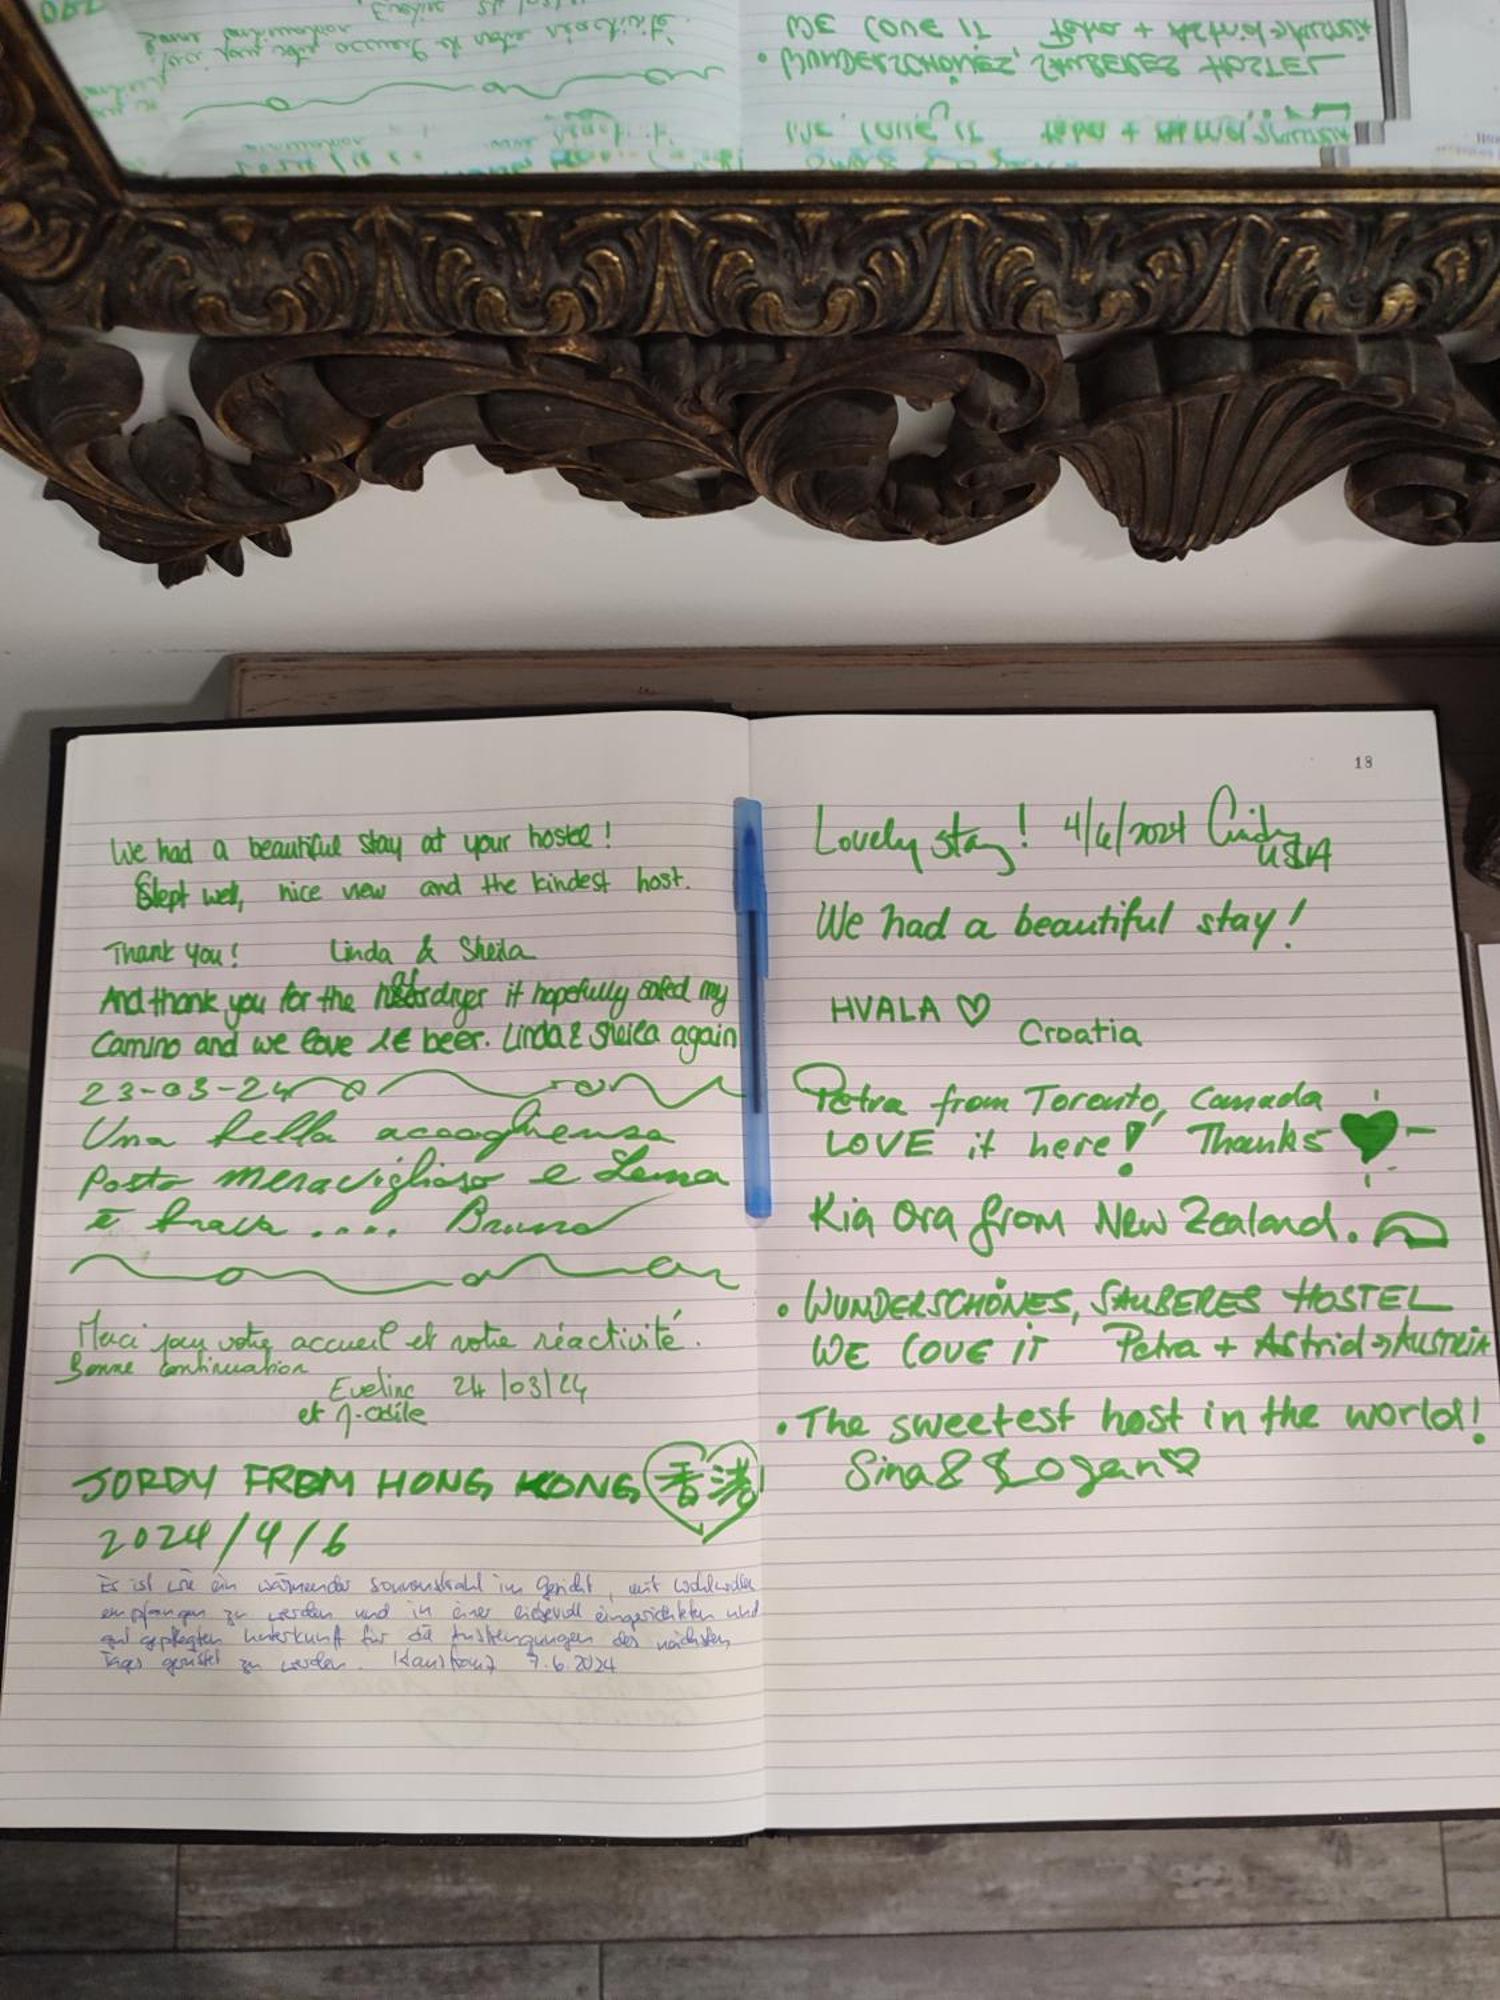 We had a beautiful stay at your hostel!
Slept well, nice view and the kindest host.
Thank you! Linda & Sheila
And thank you for the dryer it hopefully safed my
Camino and we love 1€ beer. Linda & Sheila again
23-03-24
Una bella accoglhensa
Posto meraviglioso e
è brava .... Bruno
Merci pour votre accueil et votre réactivité.
Bonne continuation
Eveline 24/03/24
et J-Odile
JORDY FROM HONG KONG 香港
2024/4/6
Es ist wie ein wärmender Sonnenstrahl im Gesicht, mit Wohlwollen
empfangen zu werden und in einer liebevoll eingerichteten und
gut gepflegten Unterkunft für die Anstrengungen des nächsten
Tages gerüstet zu werden. 7.6.2024
18
Lovely stay! 4/6/2024 Cindy
USA
We had a beautiful stay!
HVALA ♡
Croatia
Petra from Toronto, Canada
LOVE it here! Thanks
Kia Ora from New Zealand.
• WUNDERSCHÖNES, SAUBERES HOSTEL
WE LOVE IT Petra + Astrid → AUSTRIA
• The sweetest host in the world!
Sina & Logan ♡